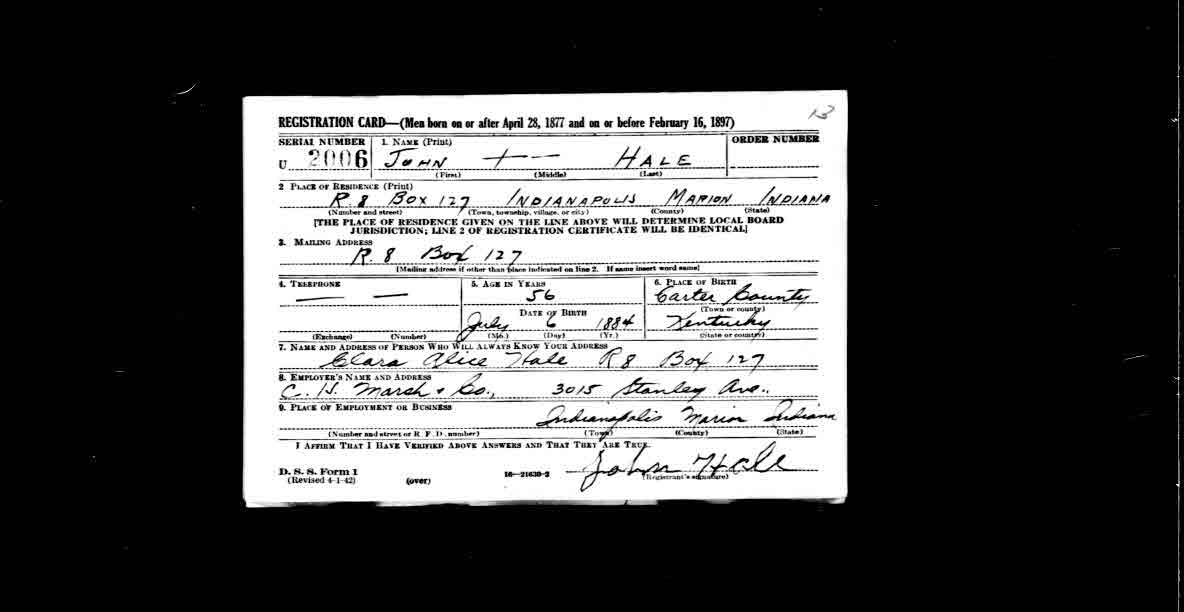 13
REGISTRATION CARD—(Men born on or after April 28, 1877 and on or before February 16, 1897)
SERIAL NUMBER 1. NAME (Print) ORDER NUMBER
U 2006 JOHN — HALE
(First) (Middle) (Last)
2 PLACE OF RESIDENCE (Print)
R 8 BOX 127 INDIANAPOLIS MARION INDIANA
(Number and street) (Town, township, village, or city) (County) (State)
[THE PLACE OF RESIDENCE GIVEN ON THE LINE ABOVE WILL DETERMINE LOCAL BOARD
JURISDICTION; LINE 2 OF REGISTRATION CERTIFICATE WILL BE IDENTICAL]
3. MAILING ADDRESS
R. 8 Box 127
[Mailing address if other than place indicated on line 2. If same insert word same]
4. TELEPHONE 5. AGE IN YEARS 6. PLACE OF BIRTH
— — 56 Carter County
DATE OF BIRTH (Town or county)
July 6 1884 Kentucky
(Exchange) (Number) (Mo.) (Day) (Yr.) (State or country)
7. NAME AND ADDRESS OF PERSON WHO WILL ALWAYS KNOW YOUR ADDRESS
Clara Alice Hale R 8 Box 127
8. EMPLOYER'S NAME AND ADDRESS
C. H. Marsh & Co., 3015 Stanley Ave..
9. PLACE OF EMPLOYMENT OR BUSINESS
Indianapolis Marion Indiana
(Number and street or R. F. D. number) (Town) (County) (State)
I AFFIRM THAT I HAVE VERIFIED ABOVE ANSWERS AND THAT THEY ARE TRUE.
D. S. S. Form 1 16—21630-2 John Hale
(Revised 4-1-42) (over) (Registrant's signature)